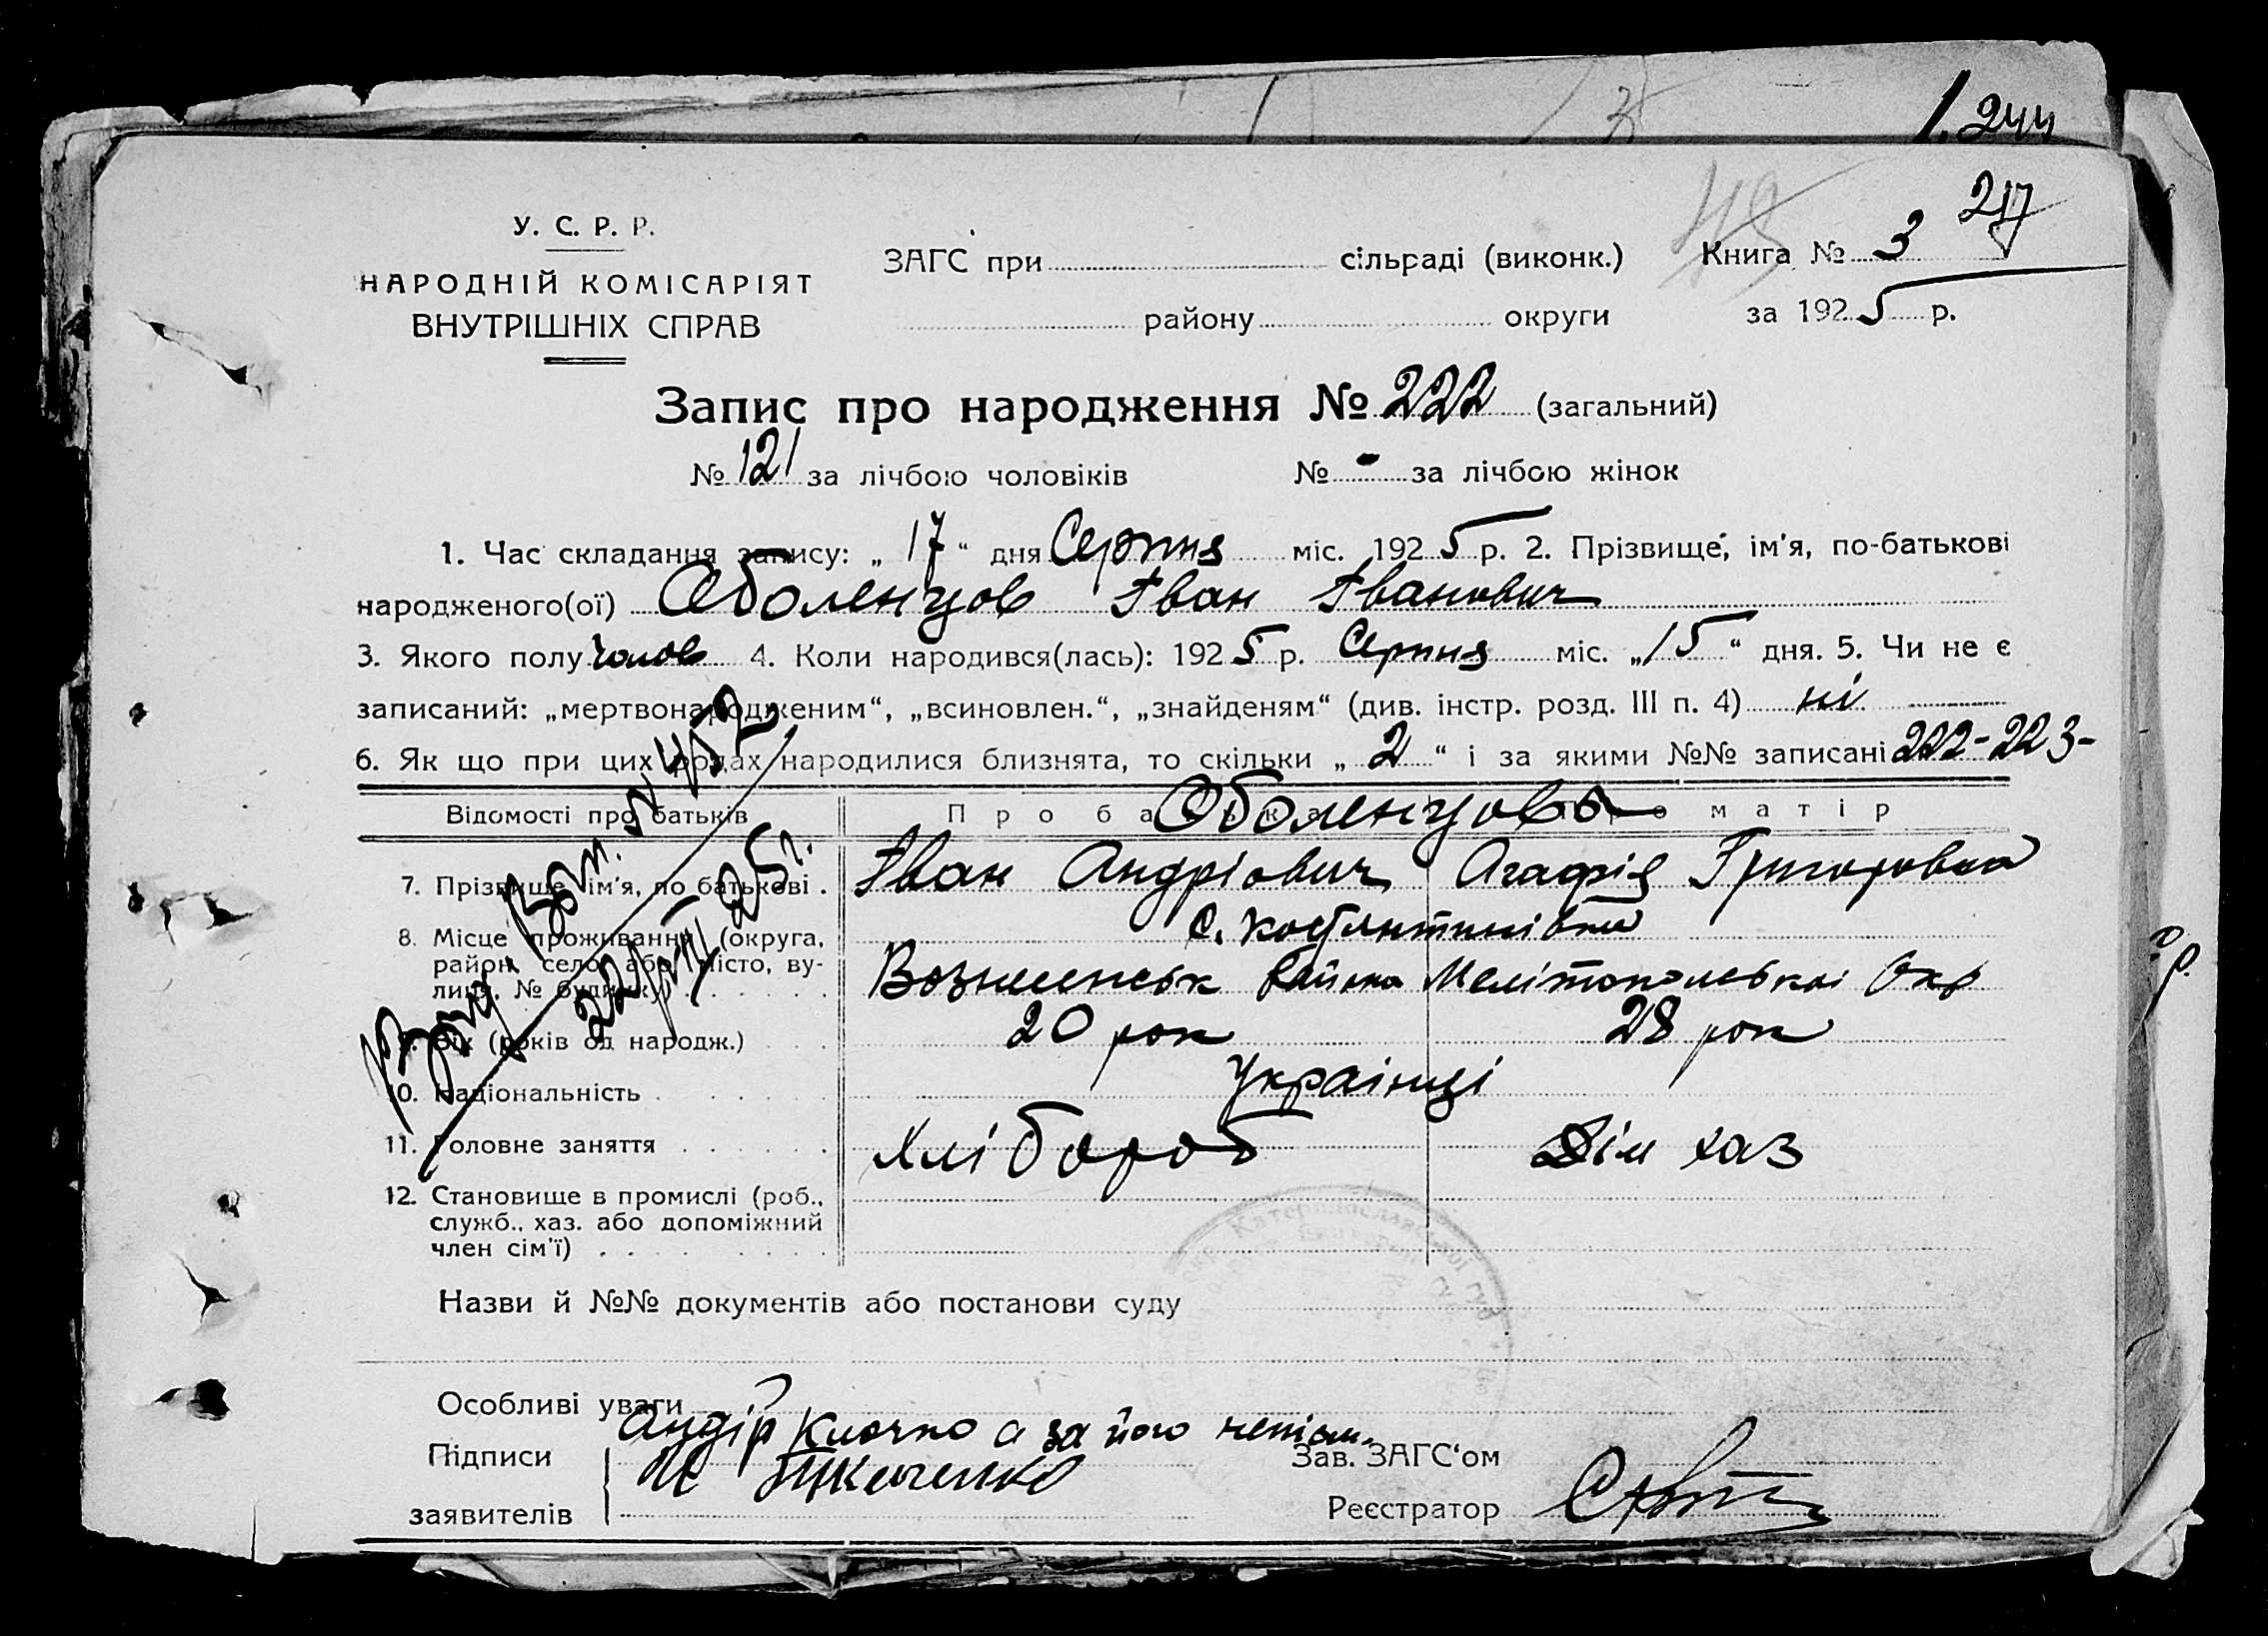 1. 244
217
У. С. Р. Р.
НАРОДНІЙ КОМІСАРІЯТ
ВНУТРІШНІХ СПРАВ
ЗАГС при сільраді (виконк.) Книга № 3
району округи за 1925 р.
Запис про народження № 222 (загальний)
№ 121 за лічбою чоловіків № - за лічбою жінок
1. Час складання запису: „ 17 “ дня Серпня міс. 1925 р. 2. Прізвище, ім'я, по-батькові
народженого(ої) Оболенцов Іван Іванович
3. Якого полу чолов 4. Коли народився(лась): 1925 р. Серпня міс. „15“ дня. 5. Чи не є
записаний: „мертвонародженим“, „всиновлен.“, „знайденям“ (див. інстр. розд. III п. 4) ні
6. Як що при цих родах народилися близнята, то скільки „ 2 “ і за якими №№ записані 222-223-
Відомості про батьків Про батька Про матір
Оболенцовы
7. Прізвище, ім'я, по батькові . Іван Андріович Агафія Григоровна
8. Місце проживання (округа, район, село або місто, вулиця, № будинку)
с. Костянтинівки
Вознесенськ Району Мелітопольскоі Окр
9. Вік (років од народж.) 20 рок 28 рок
10. Національність Украінці
11. Головне заняття Хлібороб Дім хаз
12. Становище в промислі (роб.,
служб., хаз. або допоміжний
член сім'ї)
22/VII 25 г.
Назви й №№ документів або постанови суду
Особливі уваги
Андір Клочко а за його непісм.
Підписи И Ткаченко Зав. ЗАГС'ом
заявителів Реєстратор